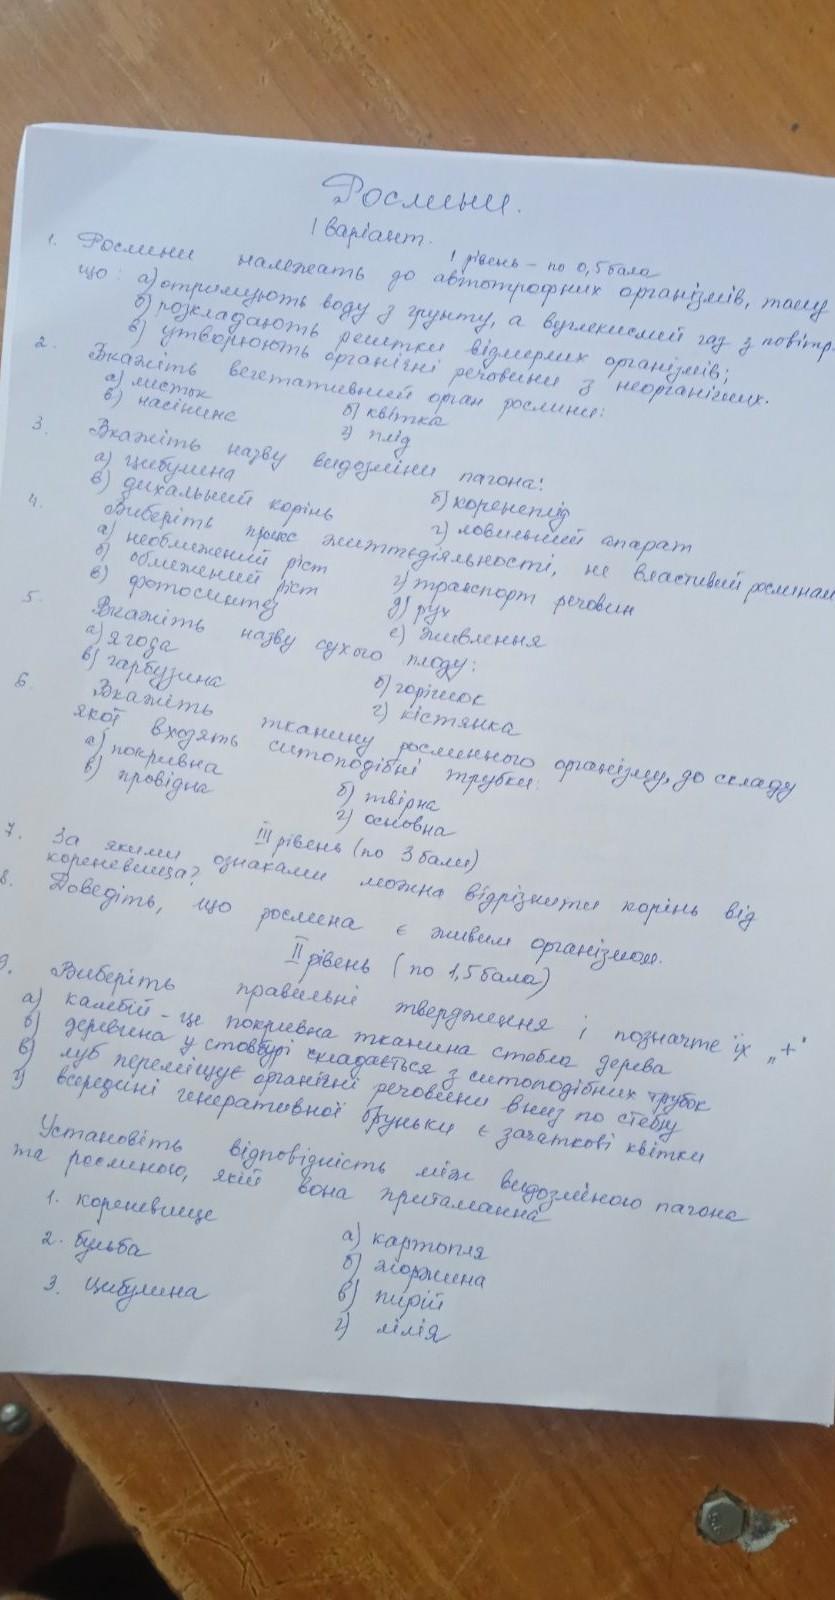 Рослини.
І варіант.
І рівень – по 0,5 бала
1. Рослини належать до автотрофних організмів, тому
що: а) отримують воду з грунту, а вуглекислий газ з повітр
б) розкладають решетки відмерлих організмів;
в) утворюють органічні речовини з неорганічних.
2. Вкажіть вегетативний орган рослини:
а) листок б) квітка
в) насінинс г) плід
3. Вкажіть назву видозміни пагона:
а) цибулина б) коренеплід
в) дихальний корінь г) ловильний апарат
4. Виберіть процес життєдіяльності, не властивий рослинам
а) необмежений ріст г) транспорт речовин
б) обмежений ріст д) рух
в) фотосинтез е) живлення
5. Вкажіть назву сухого плоду:
а) ягода б) горішок
в) гарбузина г) кістянка
6. Вкажіть тканину рослинного організму, до складу
якої входять ситоподібні трубки:
а) покривна б) твірна
в) провідна г) основна
ІІІ рівень (по 3 бали)
7. За якими ознаками можна відрізнити корінь від
кореневища?
8. Доведіть, що рослина є живим організмом.
ІІ рівень (по 1,5 бала)
9. Виберіть правильні твердження і позначте їх „+"
а) камбій – це покривна тканина стебла дерева
б) деревина у стовбурі складається з ситоподібних трубок
в) луб переміщує органічні речовини вниз по стеблу
г) всередині генеративної бруньки є зачаткові квітки
Установіть відповідність між видозміною пагона
та рослиною, якій вона притаманна
1. кореневище а) картопля
2. бульба б) жоржина
3. Цибулина в) пирій
г) лілія